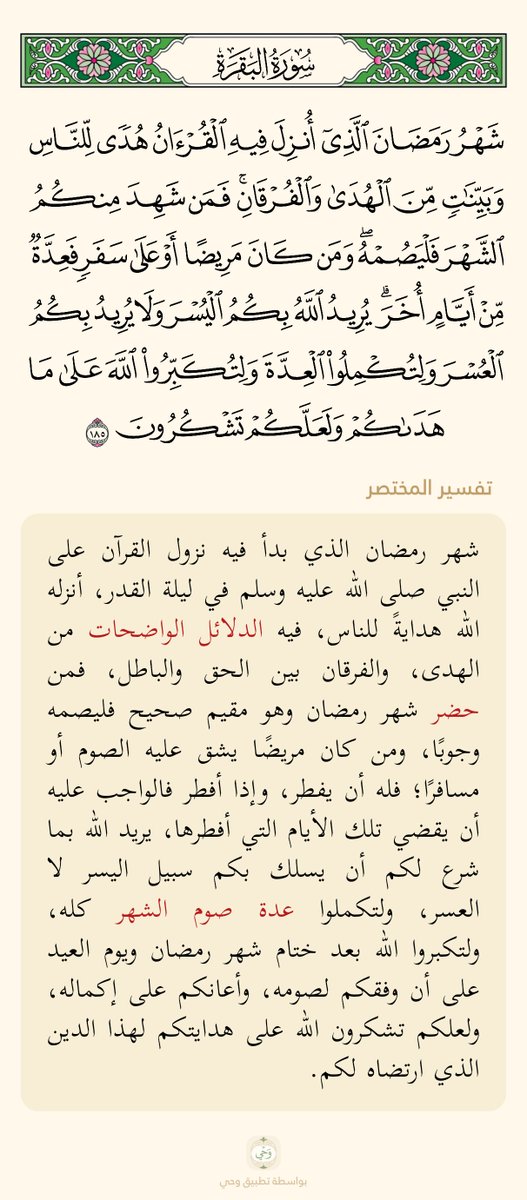 سُورَةُ البَقَرَةِ
شَهۡرُ رَمَضَانَ ٱلَّذِيٓ أُنزِلَ فِيهِ ٱلۡقُرۡءَانُ هُدٗى لِّلنَّاسِ
وَبَيِّنَٰتٖ مِّنَ ٱلۡهُدَىٰ وَٱلۡفُرۡقَانِۚ فَمَن شَهِدَ مِنكُمُ
ٱلشَّهۡرَ فَلۡيَصُمۡهُۖ وَمَن كَانَ مَرِيضًا أَوۡ عَلَىٰ سَفَرٖ فَعِدَّةٞ
مِّنۡ أَيَّامٍ أُخَرَۗ يُرِيدُ ٱللَّهُ بِكُمُ ٱلۡيُسۡرَ وَلَا يُرِيدُ بِكُمُ
ٱلۡعُسۡرَ وَلِتُكۡمِلُواْ ٱلۡعِدَّةَ وَلِتُكَبِّرُواْ ٱللَّهَ عَلَىٰ مَا
هَدَىٰكُمۡ وَلَعَلَّكُمۡ تَشۡكُرُونَ ١٨٥
تفسير المختصر
شهر رمضان الذي بدأ فيه نزول القرآن على
النبي صلى الله عليه وسلم في ليلة القدر، أنزله
الله هدايةً للناس، فيه الدلائل الواضحات من
الهدى، والفرقان بين الحق والباطل، فمن
حضر شهر رمضان وهو مقيم صحيح فليصمه
وجوبًا، ومن كان مريضًا يشق عليه الصوم أو
مسافرًا؛ فله أن يفطر، وإذا أفطر فالواجب عليه
أن يقضي تلك الأيام التي أفطرها، يريد الله بما
شرع لكم أن يسلك بكم سبيل اليسر لا
العسر، ولتكملوا عدة صوم الشهر كله،
ولتكبروا الله بعد ختام شهر رمضان ويوم العيد
على أن وفقكم لصومه، وأعانكم على إكماله،
ولعلكم تشكرون الله على هدايتكم لهذا الدين
الذي ارتضاه لكم.
وَحْي
بواسطة تطبيق وحي